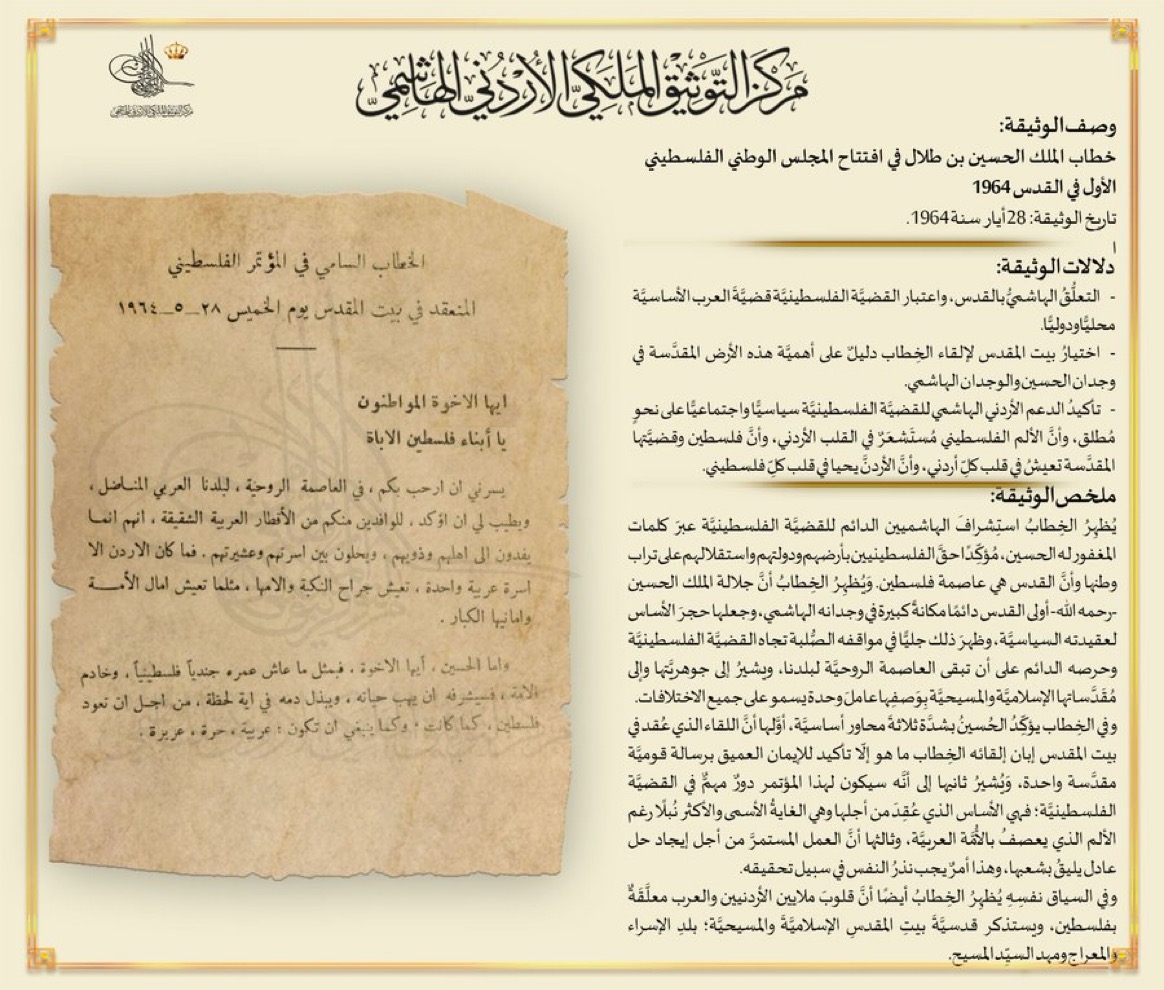 مركز التوثيق الملكي الأردني الهاشمي
مركز التوثيق الملكي الأردني الهاشمي
وصف الوثيقة:
خطاب الملك الحسين بن طلال في افتتاح المجلس الوطني الفلسطيني
الأول في القدس 1964
تاريخ الوثيقة: 28 أيار سنة 1964.
ا
دلالات الوثيقة:
- التعلُّقُ الهاشميُّ بالقدس، واعتبار القضيَّة الفلسطينيَّة قضيَّةَ العرب الأساسيَّة
محليًّا ودوليًّا.
- اختيارُ بيت المقدس لإلقاء الخِطاب دليلٌ على أهميَّة هذه الأرض المقدَّسة في
وجدان الحسين والوجدان الهاشمي.
- تأكيدُ الدعم الأردني الهاشمي للقضيَّة الفلسطينيَّة سياسيًّا واجتماعيًّا على نحوٍ
مُطلق، وأنَّ الألم الفلسطيني مُستَشعَرٌ في القلب الأردني، وأنَّ فلسطين وقضيَّتها
المقدَّسة تعيشُ في قلب كلّ أردني، وأنَّ الأردنَّ يحيا في قلب كلّ فلسطيني.
ملخص الوثيقة:
يُظهِرُ الخِطابُ استِشرافَ الهاشميين الدائم للقضيَّة الفلسطينيَّة عبرَ كلمات
المغفور له الحسين، مُؤكِّدًا حقَّ الفلسطينيين بأرضهم ودولتهم واستقلالهم على تراب
وطنها وأنَّ القدس هي عاصمة فلسطين. وَيُظهِرُ الخِطابُ أنَّ جلالة الملك الحسين
-رحمه الله- أولى القدس دائمًا مكانةً كبيرة في وجدانه الهاشمي، وجعلها حجرَ الأساس
لعقيدته السياسيَّة، وظهرَ ذلك جليًّا في مواقفه الصُّلبة تجاه القضيَّة الفلسطينيَّة
وحرصه الدائم على أن تبقى العاصمة الروحيَّة لبلدنا، ويشيرُ إلى جوهريَّتها وإلى
مُقدَّساتها الإسلاميَّة والمسيحيَّة بِوَصفِها عاملَ وحدة يسمو على جميع الاختلافات.
وفي الخِطاب يؤكِّدُ الحُسينُ بشدَّة ثلاثةَ محاور أساسيَّة، أوَّلها أنَّ اللقاء الذي عُقد في
بيت المقدس إبان إلقائه الخِطاب ما هو إلّا تأكيد للإيمان العميق برسالة قوميَّة
مقدَّسة واحدة، وَيُشيرُ ثانيها إلى أنَّه سيكون لهذا المؤتمر دورٌ مهمٌّ في القضيَّة
الفلسطينيَّة؛ فهي الأساس الذي عُقِدَ من أجلها وهي الغايةُ الأسمى والأكثر نُبلًا رغم
الألم الذي يعصفُ بالأمَّة العربيَّة، وثالثها أنَّ العمل المستمرَّ من أجل إيجاد حل
عادل يليقُ بشعبها، وهذا أمرٌ يجب نذرُ النفس في سبيل تحقيقه.
وفي السياق نفسِهِ يُظهِرُ الخِطابُ أيضًا أنَّ قلوبَ ملايين الأردنيين والعرب معلَّقَةٌ
بفلسطين، ويستذكر قدسيَّةَ بيتِ المقدس الإسلاميَّةَ والمسيحيَّة؛ بلدِ الإسراء
والمعراج ومهد السيّد المسيح.
الخطاب السامي في المؤتمر الفلسطيني
المنعقد في بيت المقدس يوم الخميس ٢٨_٥_١٩٦٤
ايها الاخوة المواطنون
يا أبناء فلسطين الاباة
يسرني ان ارحب بكم ، في العاصمة الروحية ، لبلدنا العربي المناضل ،
ويطيب لي ان اؤكد ، للوافدين منكم من الأقطار العربية الشقيقة ، انهم انما
يفدون الى اهلهم وذويهم ، ويحلون بين اسرتهم وعشيرتهم . فما كان الاردن الا
اسرة عربية واحدة ، تعيش جراح النكبة والامها ، مثلما تعيش امال الأمـة
وامانيها الكبار .
واما الحسين ، أيها الاخوة ، فبمثل ما عاش عمره جندياً فلسطينياً ، وخادم
الامة ، فسيشرفه ان يهب حياته ، ويبذل دمه في اية لحظة ، من اجل ان تعود
فلسطين ، كما كانت ، وكما ينبغي ان تكون : عربية ، حرة ، عزيزة .